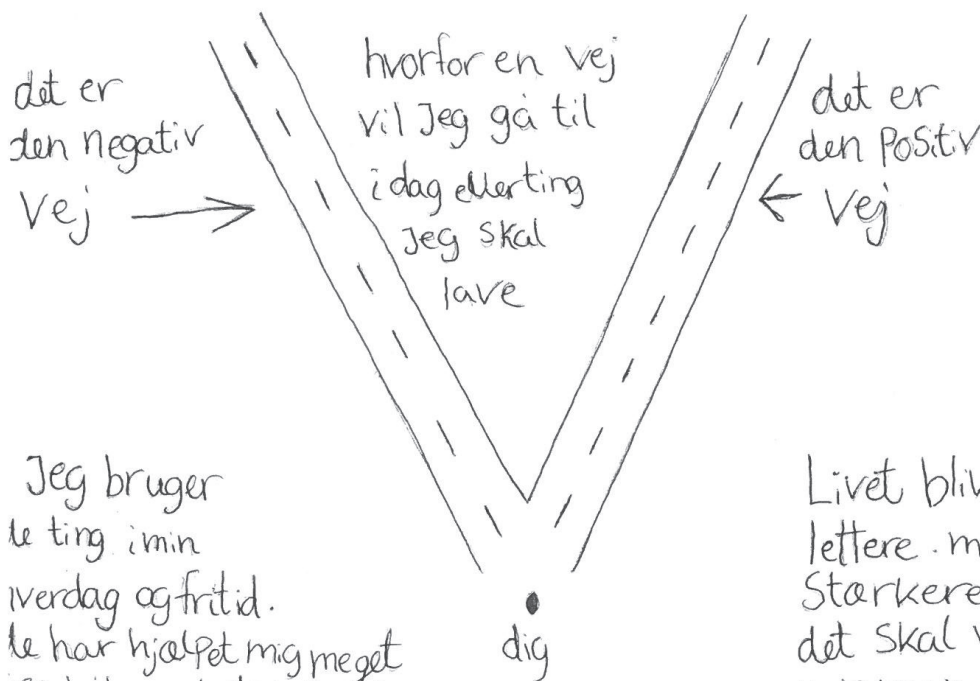 det er
den negativ
Vej
hvorfor en vej
vil Jeg gå til
i dag eller ting
Jeg skal
lave
det er
den Positiv
Vej
Jeg bruger
ting i min
og fritid.
har hjælpet mig meget
dig
Livet
lettere.
Stærkere
det skal